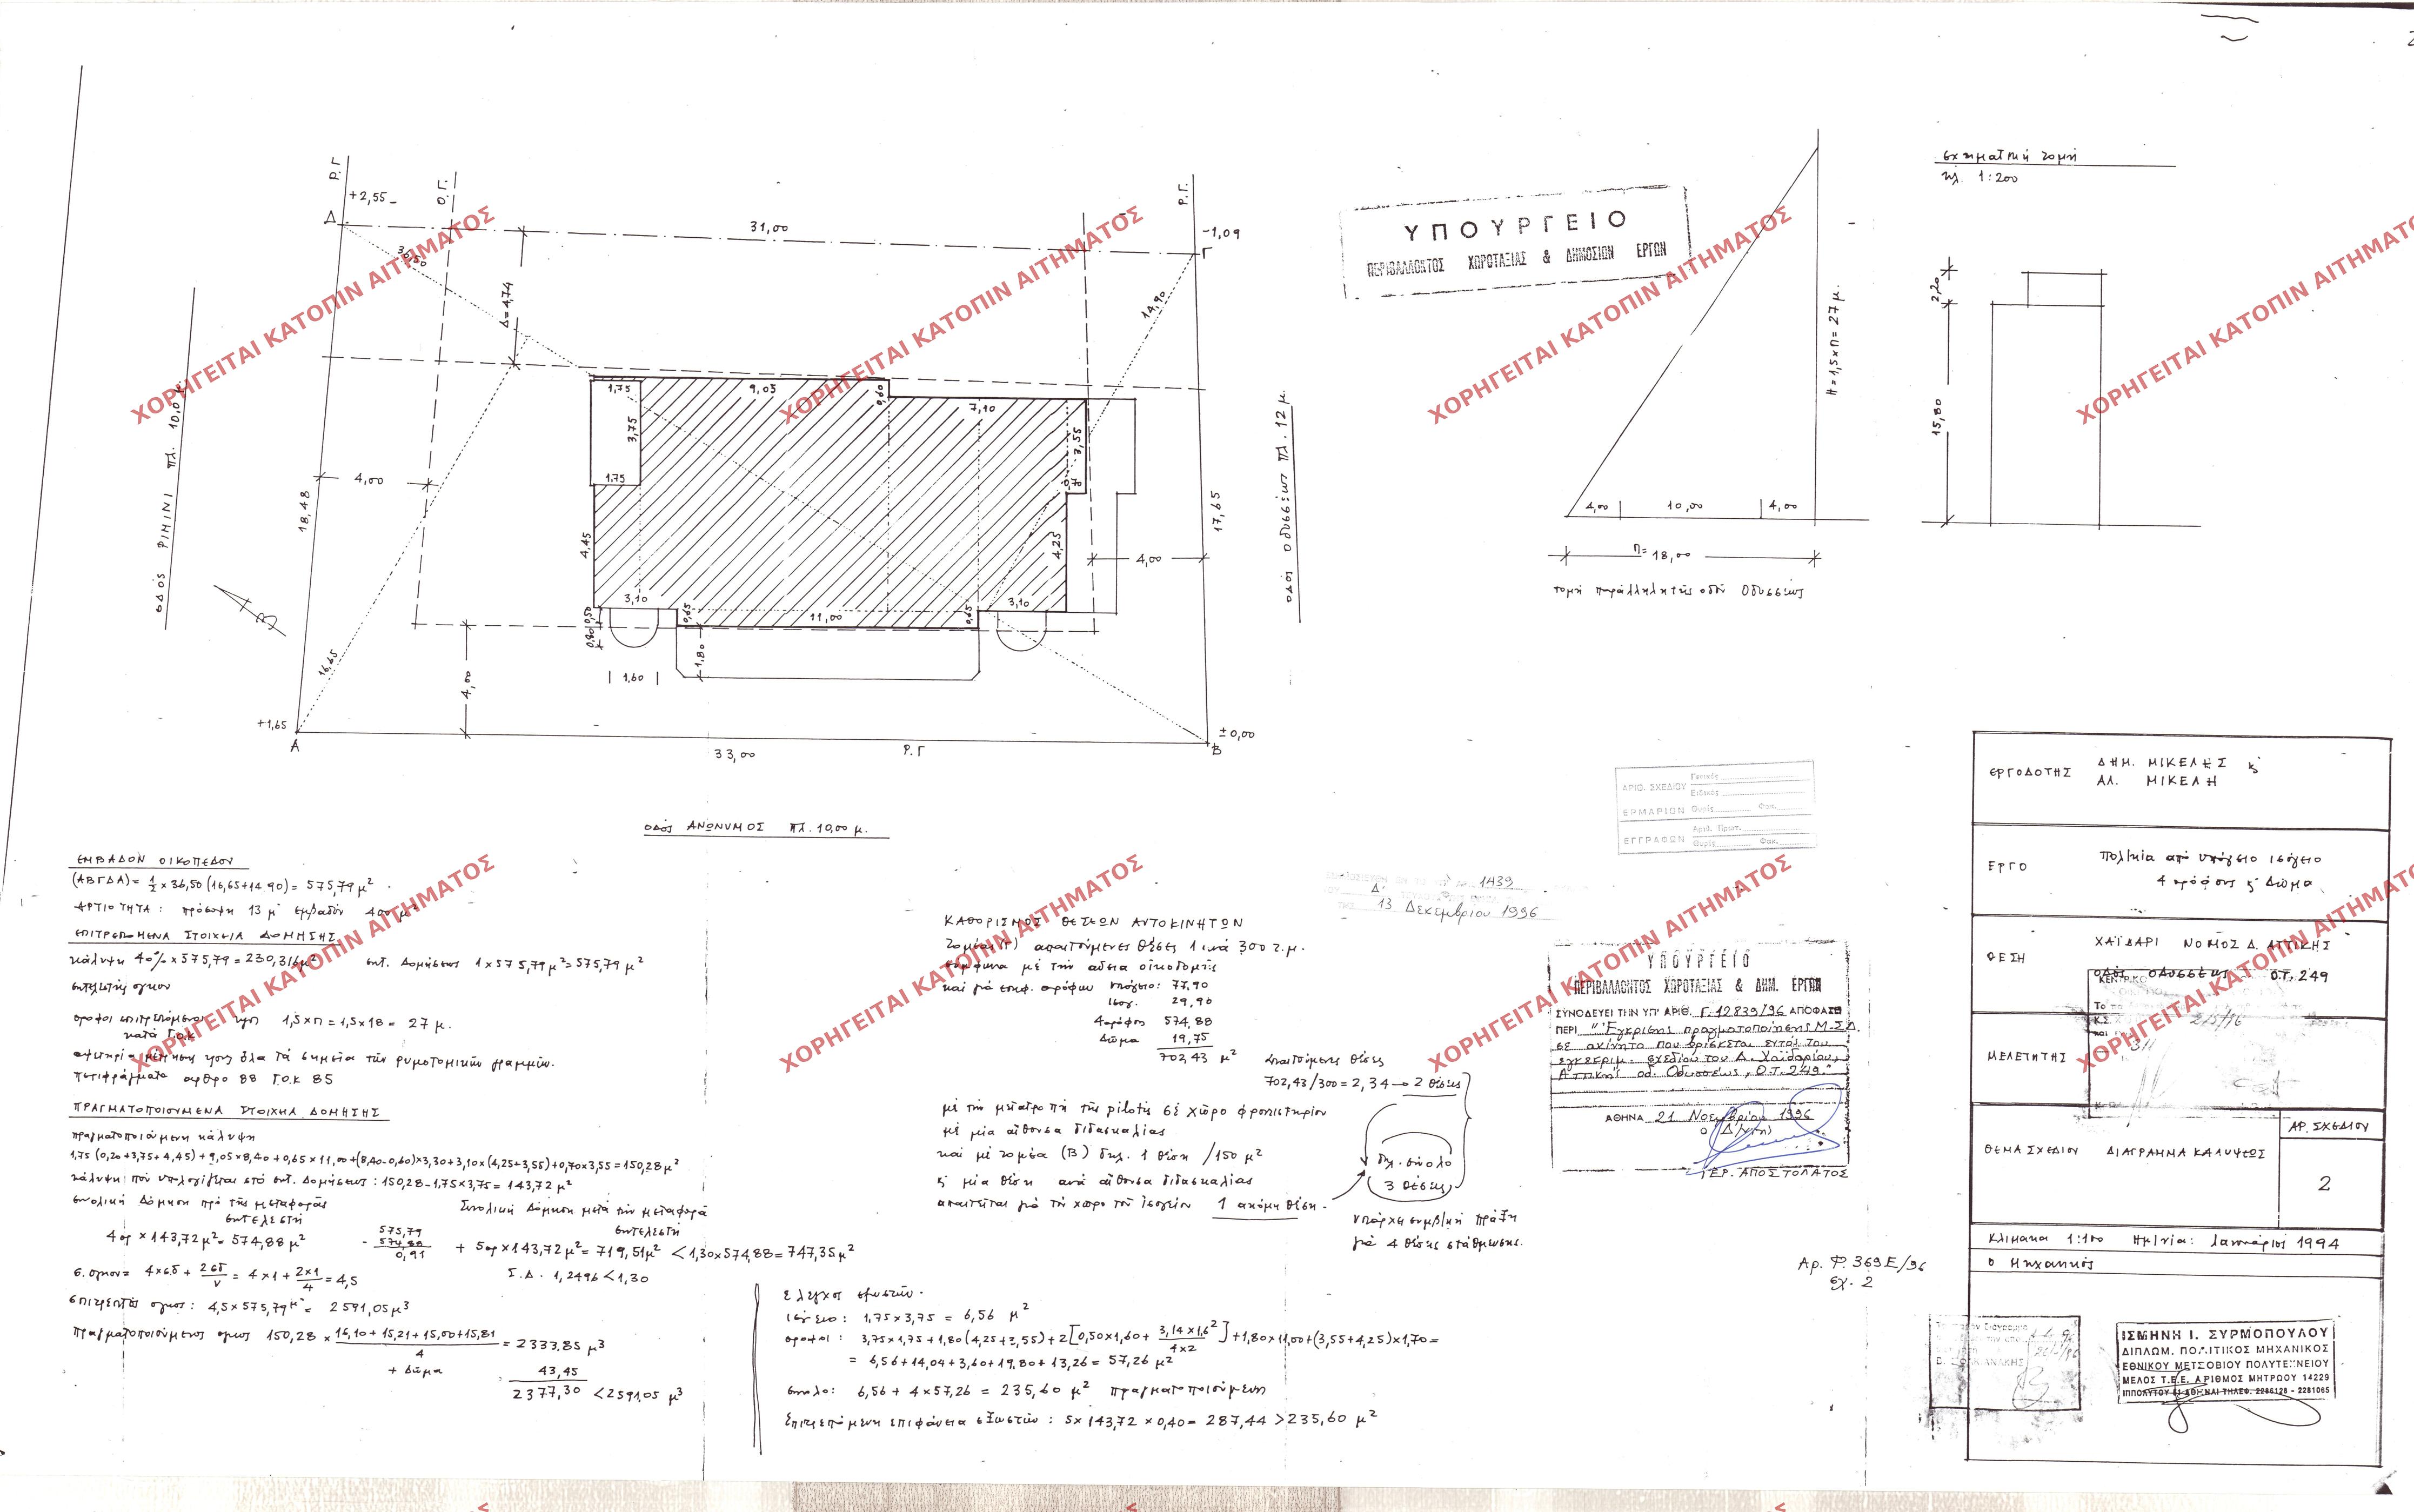 Ρ.Γ
+2,55
Ο.Γ.
Ρ.Γ.
Δ
31,00
-1,09
Γ
Δ=4,74
14,90
ΟΔΟΣ ΡΙΜΙΝΙ πλ. 10,0
1,75
9,05
0,60
7,10
3,75
3,55
1,75
0,70
4,00
18,48
17,65
ΟΔΟΣ Οδυσσέως πλ. 12 μ.
4,45
4,25
4,00
3,10
0,65
11,00
0,65
3,10
0,50
0,80
1,80
1,60
16,65
4,00
Β
+1,65
Α
33,00
Ρ.Γ
±0,00
Β
ΟΔΟΣ ΑΝΩΝΥΜΟΣ πλ. 10,00 μ.
ΥΠΟΥΡΓΕΙΟ
ΠΕΡΙΒΑΛΛΟΝΤΟΣ ΧΩΡΟΤΑΞΙΑΣ & ΔΗΜΟΣΙΩΝ ΕΡΓΩΝ
Η=1,5×π=27 μ.
4,00
10,00
4,00
π=18,00
τομή παράλληλη της οδού Οδυσσέως
σχηματική τομή
κλ. 1:200
2,20
15,80
ΕΜΒΑΔΟΝ ΟΙΚΟΠΕΔΟΥ
(ΑΒΓΔΑ)= 1/2 × 36,50 (16,65+14,90) = 575,79 μ²
ΑΡΤΙΟΤΗΤΑ: πρόσωπο 13 μ εμβαδόν 400 μ²
ΕΠΙΤΡΕΠΟΜΕΝΑ ΣΤΟΙΧΕΙΑ ΔΟΜΗΣΗΣ
κάλυψη 40% × 575,79 = 230,316 μ² συντ. δομήσεως 1×575,79 μ² = 575,79 μ²
συντελεστής όγκου
1,5×π = 1,5×18 = 27 μ.
κατά Γ.Ο.Κ
αφετηρία μέτρησης ύψους όλα τά σημεία τών ρυμοτομικών γραμμών.
περιφράγματα άρθρο 88 Γ.Ο.Κ 85
ΠΡΑΓΜΑΤΟΠΟΙΟΥΜΕΝΑ ΣΤΟΙΧΕΙΑ ΔΟΜΗΣΗΣ
πραγματοποιούμενη κάλυψη
1,75 (0,20+3,75+4,45) + 9,05×8,40 + 0,65×11,00 + (8,40-0,60)×3,30 + 3,10×(4,25+3,55) + 0,70×3,55 = 150,28 μ²
κάλυψη πού υπολογίζεται στό συντ. δομήσεως: 150,28-1,75×3,75 = 143,72 μ²
συνολική δόμηση πρό της μεταφοράς
συντελεστή
4 ορ × 143,72 μ² = 574,88 μ²
Συνολική δόμηση μετά τήν μεταφορά
συντελεστή
575,79
- 574,88
0,91
+ 5ορ × 143,72 μ² = 719,51 μ² < 1,30×574,88 = 747,35 μ²
Σ.Δ. 1,2496 < 1,30
σ. όγκου = 4×σδ + 2σδ/ν = 4×1 + 2×1/4 = 4,5
επιτρεπτός όγκος: 4,5×575,79 μ² = 2591,05 μ³
πραγματοποιούμενος όγκος 150,28 × 16,10+15,21+15,00+15,81 / 4 = 2333,85 μ³
+ δώμα 43,45
2377,30 < 2591,05 μ³
ΚΑΘΟΡΙΣΜΟΣ ΘΕΣΕΩΝ ΑΥΤΟΚΙΝΗΤΩΝ
τομέας (Γ) απαιτούμενες θέσεις 1 ανά 300 τ.μ.
σύμφωνα με τήν άδεια οικοδομής
και γιά επιφ. ορόφων υπόγειο: 77,90
Ισογ. 29,90
4 ορόφοι 574,88
δώμα 19,75
702,43 μ²
Απαιτούμενες θέσεις
702,43/300 = 2,34 → 2 θέσεις
μέ τήν μετατροπή τής pilotis σέ χώρο φροντιστηρίου
μέ μία αίθουσα διδασκαλίας
καί μέ τομέα (Β) δηλ. 1 θέση /150 μ²
ή μία θέση ανά αίθουσα διδασκαλίας
απαιτείται γιά τό χώρο τού Ισογείου 1 ακόμη θέση.
δηλ. σύνολο
3 θέσεις
υπάρχει συμβ/κή πράξη
γιά 4 θέσεις στάθμευσης.
έλεγχος εξωστών.
ισόγειο: 1,75×3,75 = 6,56 μ²
όροφοι: 3,75×1,75 + 1,80(4,25+3,55) + 2[0,50×1,60 + 3,14×1,6²/4×2] + 1,80×11,00 + (3,55+4,25)×1,70 =
= 6,56 + 14,04 + 3,60 + 19,80 + 13,26 = 57,26 μ²
σύνολο: 6,56 + 4×57,26 = 235,60 μ² πραγματοποιούμενη
Επιτρεπόμενη επιφάνεια εξωστών: 5×143,72×0,40 = 287,44 > 235,60 μ²
ΑΡΙΘ. ΣΧΕΔΙΟΥ Γενικός
Ειδικός
ΕΡΜΑΡΙΟΝ Θυρίς Φακ.
ΕΓΓΡΑΦΩΝ Αριθ. Πρωτ.
Θυρίς Φακ.
1439
Δ'
13 Δεκεμβρίου 1996
ΥΠΟΥΡΓΕΙΟ
ΠΕΡΙΒΑΛΛΟΝΤΟΣ ΧΩΡΟΤΑΞΙΑΣ & ΔΗΜ. ΕΡΓΩΝ
ΣΥΝΟΔΕΥΕΙ ΤΗΝ ΥΠ' ΑΡΙΘ. Γ.12839/96 ΑΠΟΦΑΣΗ
ΠΕΡΙ "Έγκρισης πραγματοποίησης Μ.Σ.Δ.
σε ακίνητο που βρίσκεται εντός του
εγκεκριμ. σχεδίου του Δ. Χαϊδαρίου,
Αττικής οδ. Οδυσσέως, Ο.Τ. 249."
ΑΘΗΝΑ 21 Νοεμβρίου 1996
Ο Δ/ντης
ΓΕΡ. ΑΠΟΣΤΟΛΑΤΟΣ
Αρ. Φ. 369Ε/96
σχ. 2
ΕΡΓΟΔΟΤΗΣ ΔΗΜ. ΜΙΚΕΛΗΣ &
ΑΛ. ΜΙΚΕΛΗ
ΕΡΓΟ Πολ/κία από υπόγειο ισόγειο
4 ορόφους & δώμα
ΘΕΣΗ ΧΑΪΔΑΡΙ ΝΟΜΟΣ Δ. ΑΤΤΙΚΗΣ
ΟΔΟΣ ΟΔΥΣΣΕΩΣ Ο.Τ. 249
ΚΕΝΤΡΙΚΟ
ΜΕΛΕΤΗΤΗΣ
ΘΕΜΑ ΣΧΕΔΙΟΥ ΔΙΑΓΡΑΜΜΑ ΚΑΛΥΨΕΩΣ
ΑΡ. ΣΧΕΔΙΟΥ
2
Κλίμακα 1:100 Ημ/νία: Ιανουάριος 1994
Ο Μηχανικός
ΙΣΜΗΝΗ Ι. ΣΥΡΜΟΠΟΥΛΟΥ
ΔΙΠΛΩΜ. ΠΟΛΙΤΙΚΟΣ ΜΗΧΑΝΙΚΟΣ
ΕΘΝΙΚΟΥ ΜΕΤΣΟΒΙΟΥ ΠΟΛΥΤΕΧΝΕΙΟΥ
ΜΕΛΟΣ Τ.Ε.Ε. ΑΡΙΘΜΟΣ ΜΗΤΡΩΟΥ 14229
ΙΠΠΟΛΥΤΟΥ 61 ΑΘΗΝΑΙ ΤΗΛΕΦ. 2286128 - 2281065
ΧΟΡΗΓΕΙΤΑΙ ΚΑΤΟΠΙΝ ΑΙΤΗΜΑΤΟΣ
ΧΟΡΗΓΕΙΤΑΙ ΚΑΤΟΠΙΝ ΑΙΤΗΜΑΤΟΣ
ΧΟΡΗΓΕΙΤΑΙ ΚΑΤΟΠΙΝ ΑΙΤΗΜΑΤΟΣ
ΧΟΡΗΓΕΙΤΑΙ ΚΑΤΟΠΙΝ ΑΙΤΗΜΑΤΟΣ
ΧΟΡΗΓΕΙΤΑΙ ΚΑΤΟΠΙΝ ΑΙΤΗΜΑΤΟΣ
ΧΟΡΗΓΕΙΤΑΙ ΚΑΤΟΠΙΝ ΑΙΤΗΜΑΤΟΣ
ΧΟΡΗΓΕΙΤΑΙ ΚΑΤΟΠΙΝ ΑΙΤΗΜΑΤΟΣ
ΧΟΡΗΓΕΙΤΑΙ ΚΑΤΟΠΙΝ ΑΙΤΗΜΑΤΟΣ